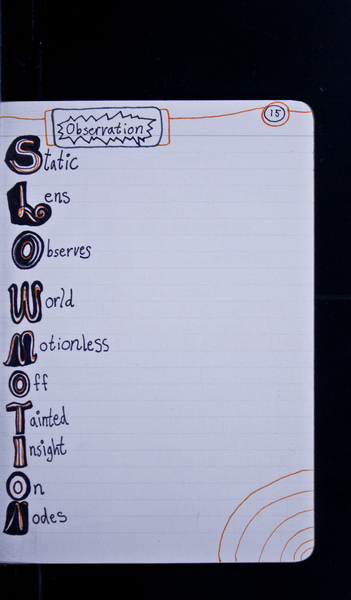 Observation
15
Static
Lens
Observes
World
Motionless
Off
Tainted
Insight
On
Nodes